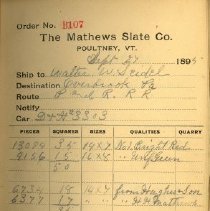 Order No. B107
The Mathews Slate Co.
POULTNEY, VT.
Sept 27 1895
Ship to Walter W. Seidel
Destination Overbrook Pa
Route P and R. R R
Notify
Car D & H 3303
PIECES SQUARES SIZES QUALITIES QUARRY
13084 35 14 X 7 No 1 Bright Red
9156 15 16 X 8 " Unf Green
50
6734 18 14 X 7 from Hughes & Son
6377 17 " " H. H. Mathews